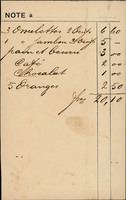 NOTE a
3 Omelettes 2 Œufs 6 60
1 " Jambon 3 Œufs 5 —
pain et beurre 3 00
Café 2 00
Chocolat 1 00
5 Oranges 2 50
frs 20,10